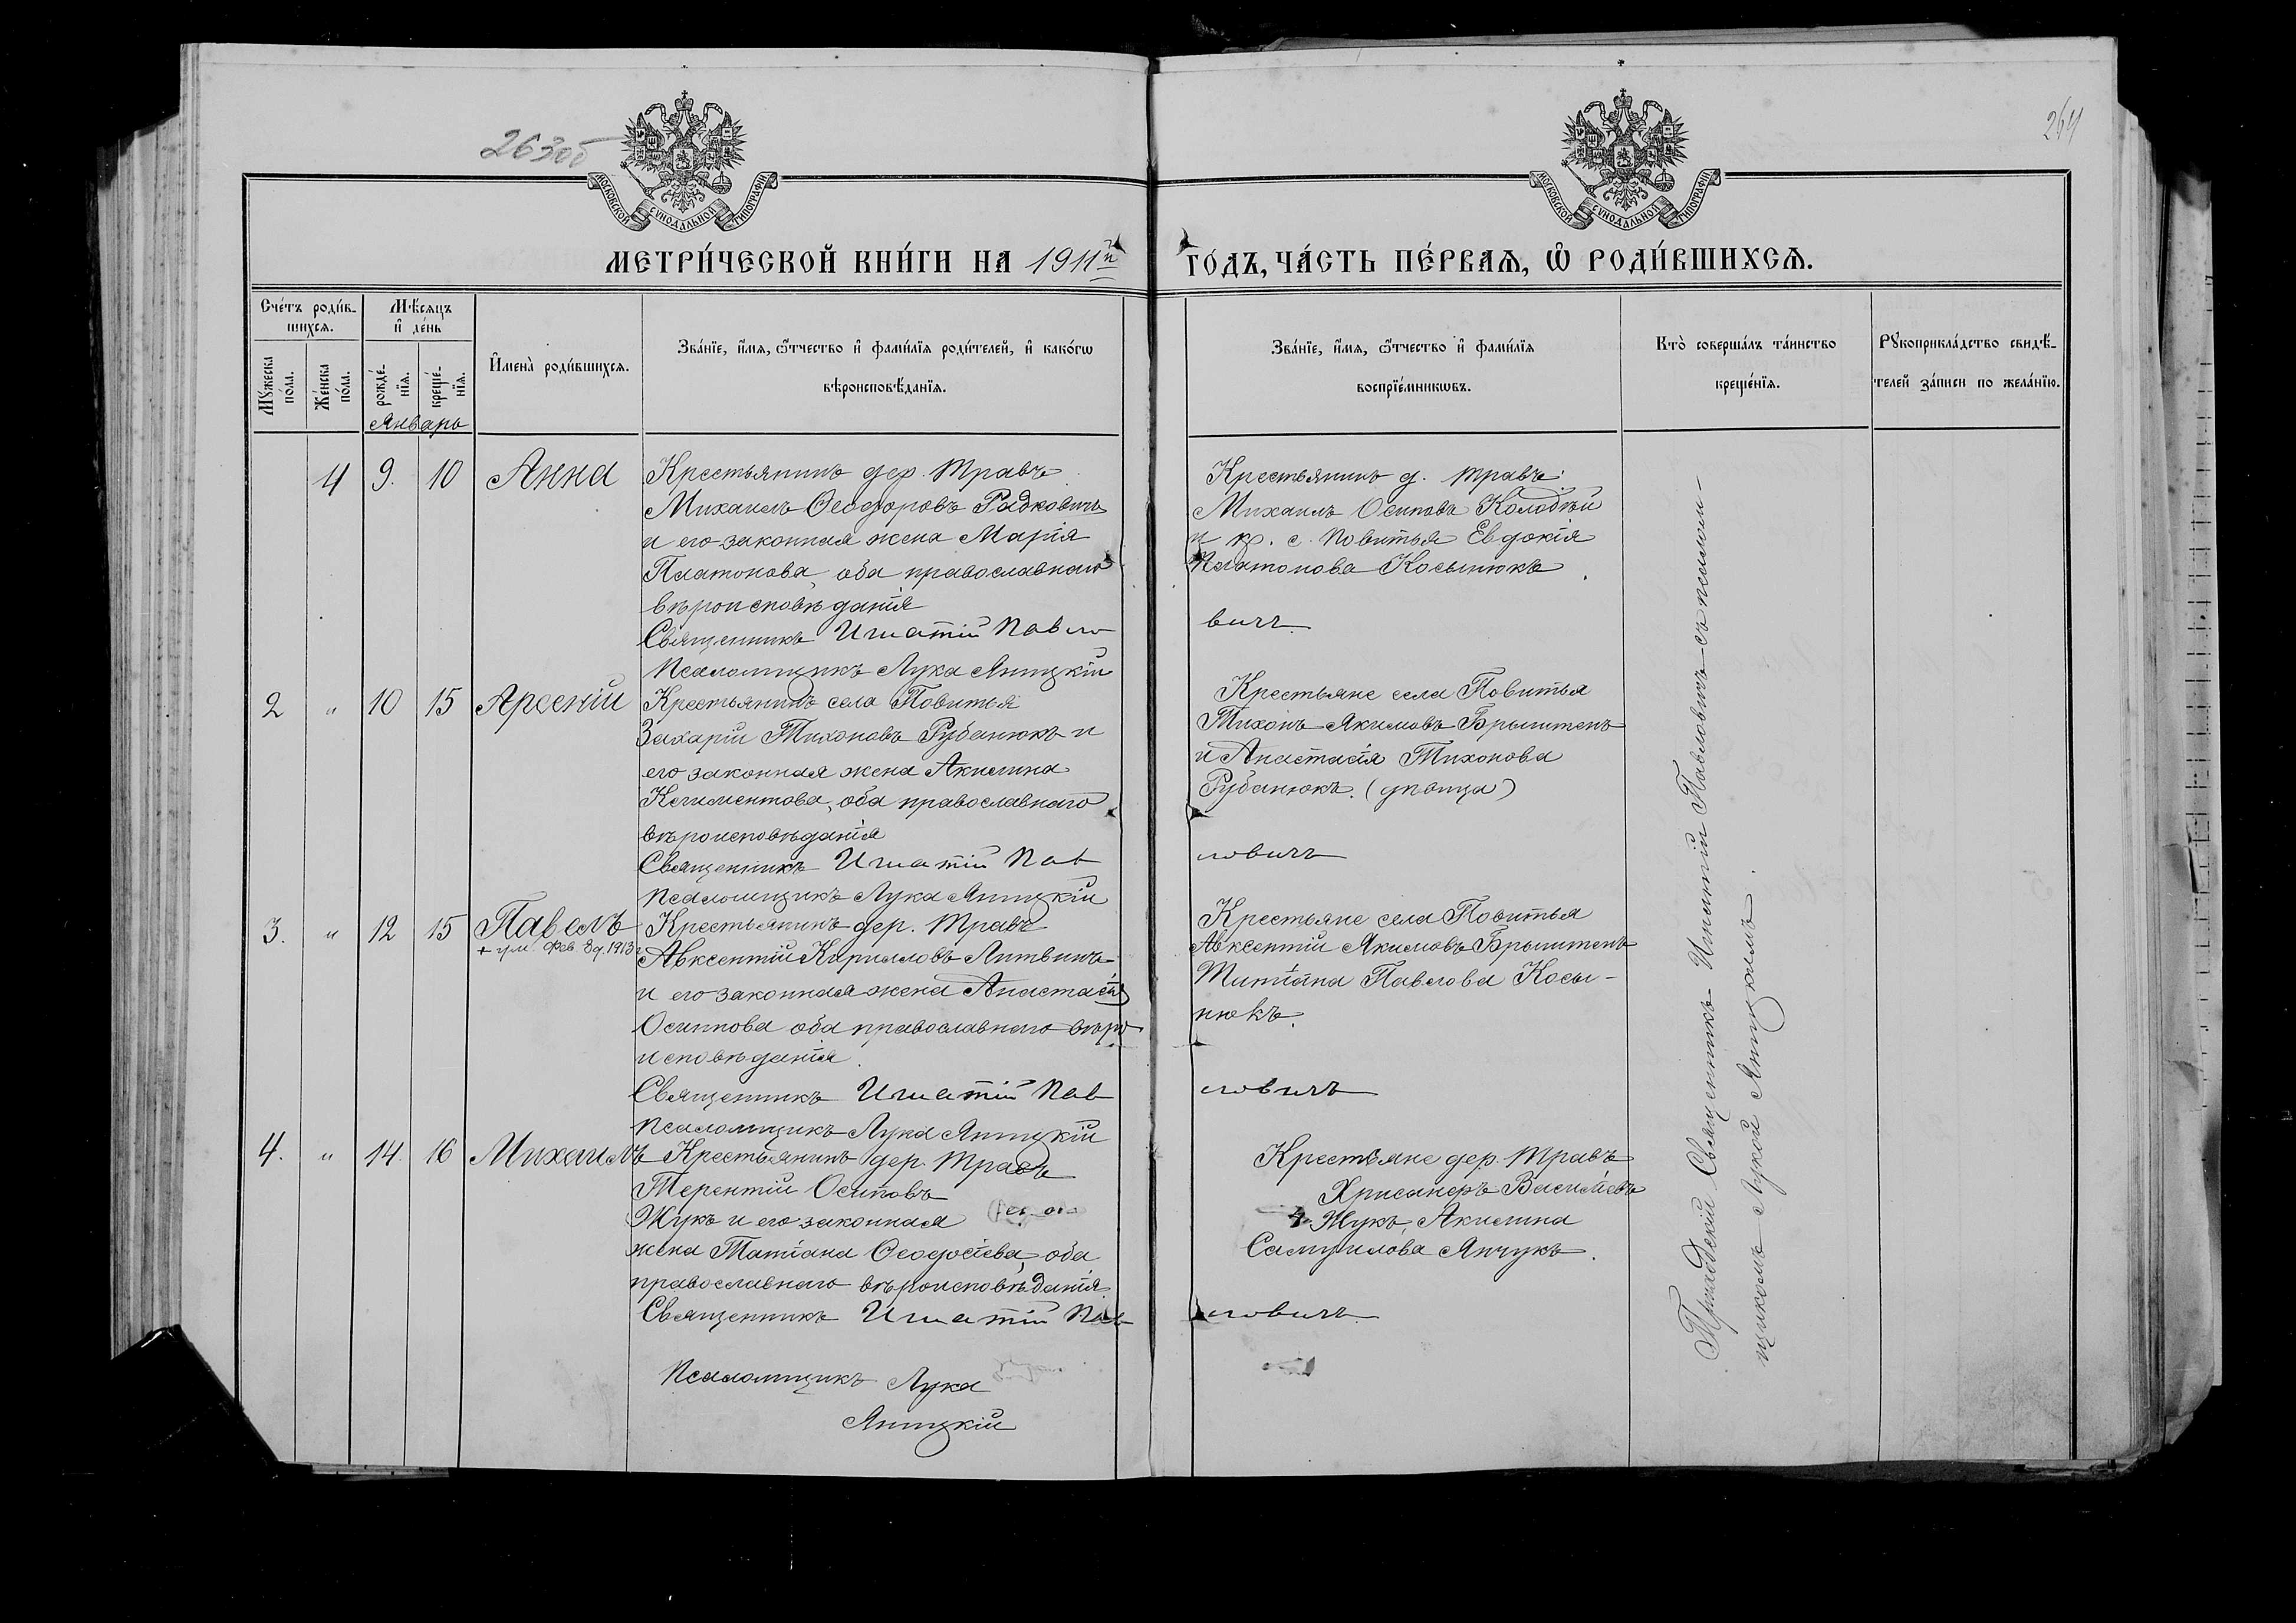 263об
264
МОСКОВСКОЙ СѴНОДАЛЬНОЙ ТИПОГРАФІИ
МОСКОВСКОЙ СѴНОДАЛЬНОЙ ТИПОГРАФІИ
МЕТРИ́ЧЕСКОЙ КНИ́ГИ НА 1911й ГО́ДЪ, ЧА́СТЬ ПЕ́РВАѦ, Ѽ РОДИ́ВШИХСѦ.
Сче́тъ роди́в-
шихсѧ.
Мꙋжеска по́ла.
Же́нска по́ла.
Мѣ́сѧцъ
и҆ де́нь
рожде́-
нїѧ.
креще́-
нїѧ.
Январь
И҆мена̀ роди́вшихсѧ.
Зва́нїе, и҆́мѧ, ѻ҆́тчество и҆ фами́лїѧ роди́телей, и҆ како́гѡ
вѣроисповѣ́данїѧ.
Зва́нїе, и҆́мѧ, ѻ҆́тчество и҆ фами́лїѧ
воспрїе́мникѡвъ.
Кто̀ соверша́лъ та́инство
креще́нїѧ.
Рꙋкоприкла́дство свидѣ́-
телей за́писи по жела́нїю.
4 9. 10 Анна
Крестьянинъ дер. Травъ
Михаилъ Ѳеодоровъ Радковичъ
и его законная жена Марія
Платонова, оба православнаго
вѣроисповѣданія
Священникъ Игнатій Павло
Псаломщикъ Лука Яницкій
Крестьянинъ д. Травъ
Михаилъ Осиповъ Колодѣй
и кр. с. Повитья Евдокія
Платонова Косынюкъ
вичъ.
2 " 10 15 Арсеній
Крестьянинъ села Повитья
Захарій Тихоновъ Рубанюкъ и
его законная жена Акилина
Климентова, оба православнаго
вѣроисповѣданія
Священникъ Игнатій Пав
Псаломщикъ Лука Яницкій
Крестьяне села Повитья
Тихонъ Якимовъ Брынтенъ
и Анастасія Тихонова
Рубанюкъ. (дѣвица)
ловичъ
3. " 12 15 Павелъ
+ ум. Фев. 8 д. 1913 г
Крестьянинъ дер. Травъ
Авксентій Кирилловъ Литвинъ
и его законная жена Анастасія
Осиповa оба православнаго вѣро
исповѣданія.
Священникъ Игнатій Пав
Псаломщикъ Лука Яницкій
Крестьяне села Повитья
Авксентій Якимовъ Брынтенъ
Титіана Павлова Косы-
нюкъ.
ловичъ
4. " 14. 16 Михаилъ
Крестьянинъ дер. Травъ
Терентій Осиповъ
Жукъ и его законная
жена Татіана Ѳеодосіева, оба
православнаго вѣроисповѣданія.
Священникъ Игнатій Пав
Псаломщикъ Лука
Яницкій
Крестьяне дер. Травъ
Хрисанфъ Васильевъ
Жукъ, Акилина
Самуилова Янчукъ.
ловичъ.
Приходскій Священникъ Игнатій Павловичъ съ псалом-
щикомъ Лукой Яницкимъ.